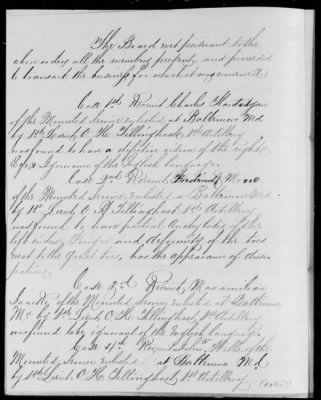 The Board met pursuant to the
above orders all the members present, and proceeded
to transact the business for which it was convened
Case 1st Recruit Charles
of the Mounted Service enlisted at Baltimore Md.
by 1st Lieut. O. H. Tillinghast 1st Artillery
was found to have a defective vision of the right
Eye & Ignorance of the English language.
Case 2nd Recruit Ferdinand
of the Mounted Service enlisted at Baltimore Md.
by 1st Lieut. O. H. Tillinghast 1st Artillery
was found to have partial Anchylosis of the
left index Finger and deformity of the toes
next to the great toes, has the appearance of dissi
pation.
Case 3rd Recruit Maximilian
of the Mounted Service enlisted at Baltimore
Md by 1st Lieut. O. H. Tillinghast, 1st Artillery
was found to be ignorant of the English language
Case 4th Recruit John Wells of the
Mounted Service enlisted at Baltimore Md.
by 1st Lieut. O. H. Tillinghast 1st Artillery
(over)